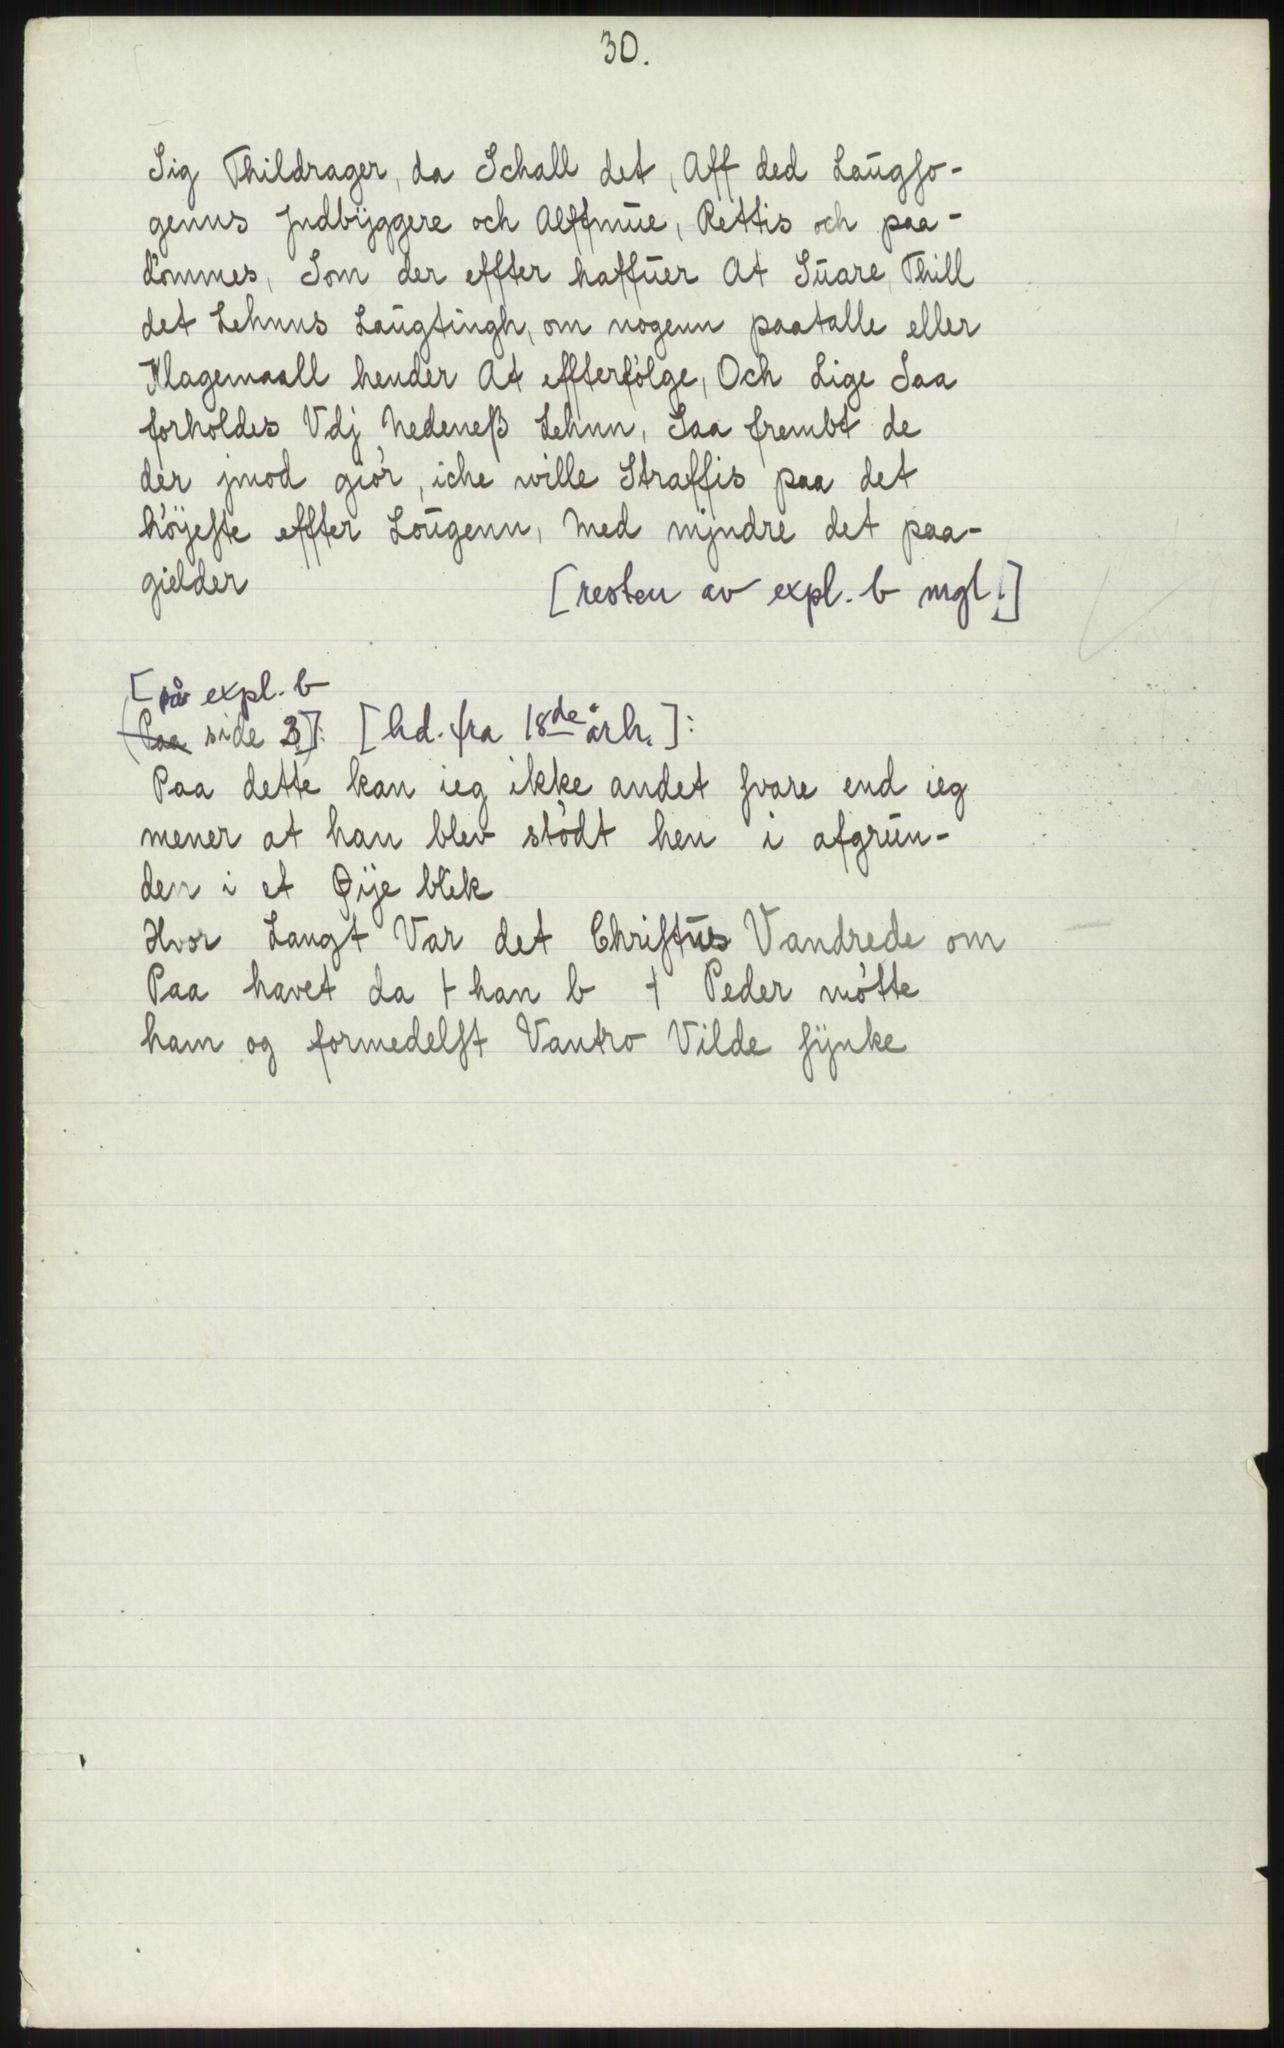 30.
Sig Thildrager, da Schall det, Aff ded Laugſo-
genns Jndbÿggere och Alffmue, Rettis och paa-
dömmes, Som der effter haffuer At Suare, Thill
det Lehnns Laugtingh, om nogenn paatalle eller
Klagemaall hender At effterfölge, Och Lige Saa
forholdes Vdj Nedeneß Lehnn, Saa frembt de
der jmod giör, iche wille Straffis paa det
höÿeſte effter Lougenn, Med mjndre det paa-
gielder [resten av expl. b mgl.]
[på expl. b
(Paa side 3]: [hd. fra 18de årh.]:
Paa dette kan ieg ikke andet ſvare end ieg
mener at han blev stödt hen i afgrun-
den i et Øije blik
Hvor Langt Var det Chriſtus Vandrede om
Paa havet da + han b + Peder mötte
ham og formedelſt Vantro Vilde ſÿnke